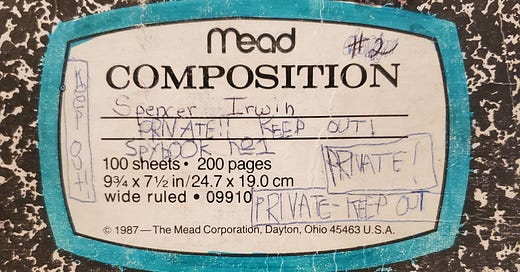 Mead
#2
COMPOSITION
Spencer Irwin
PRIVATE!! KEEP OUT!
SPYBOOK No1
KEEP OUT
PRIVATE!
100 sheets • 200 pages
9¾ x 7½ in/24.7 x 19.0 cm
wide ruled • 09910
PRIVATE-KEEP OUT
© 1987—The Mead Corporation, Dayton, Ohio 45463 U.S.A.